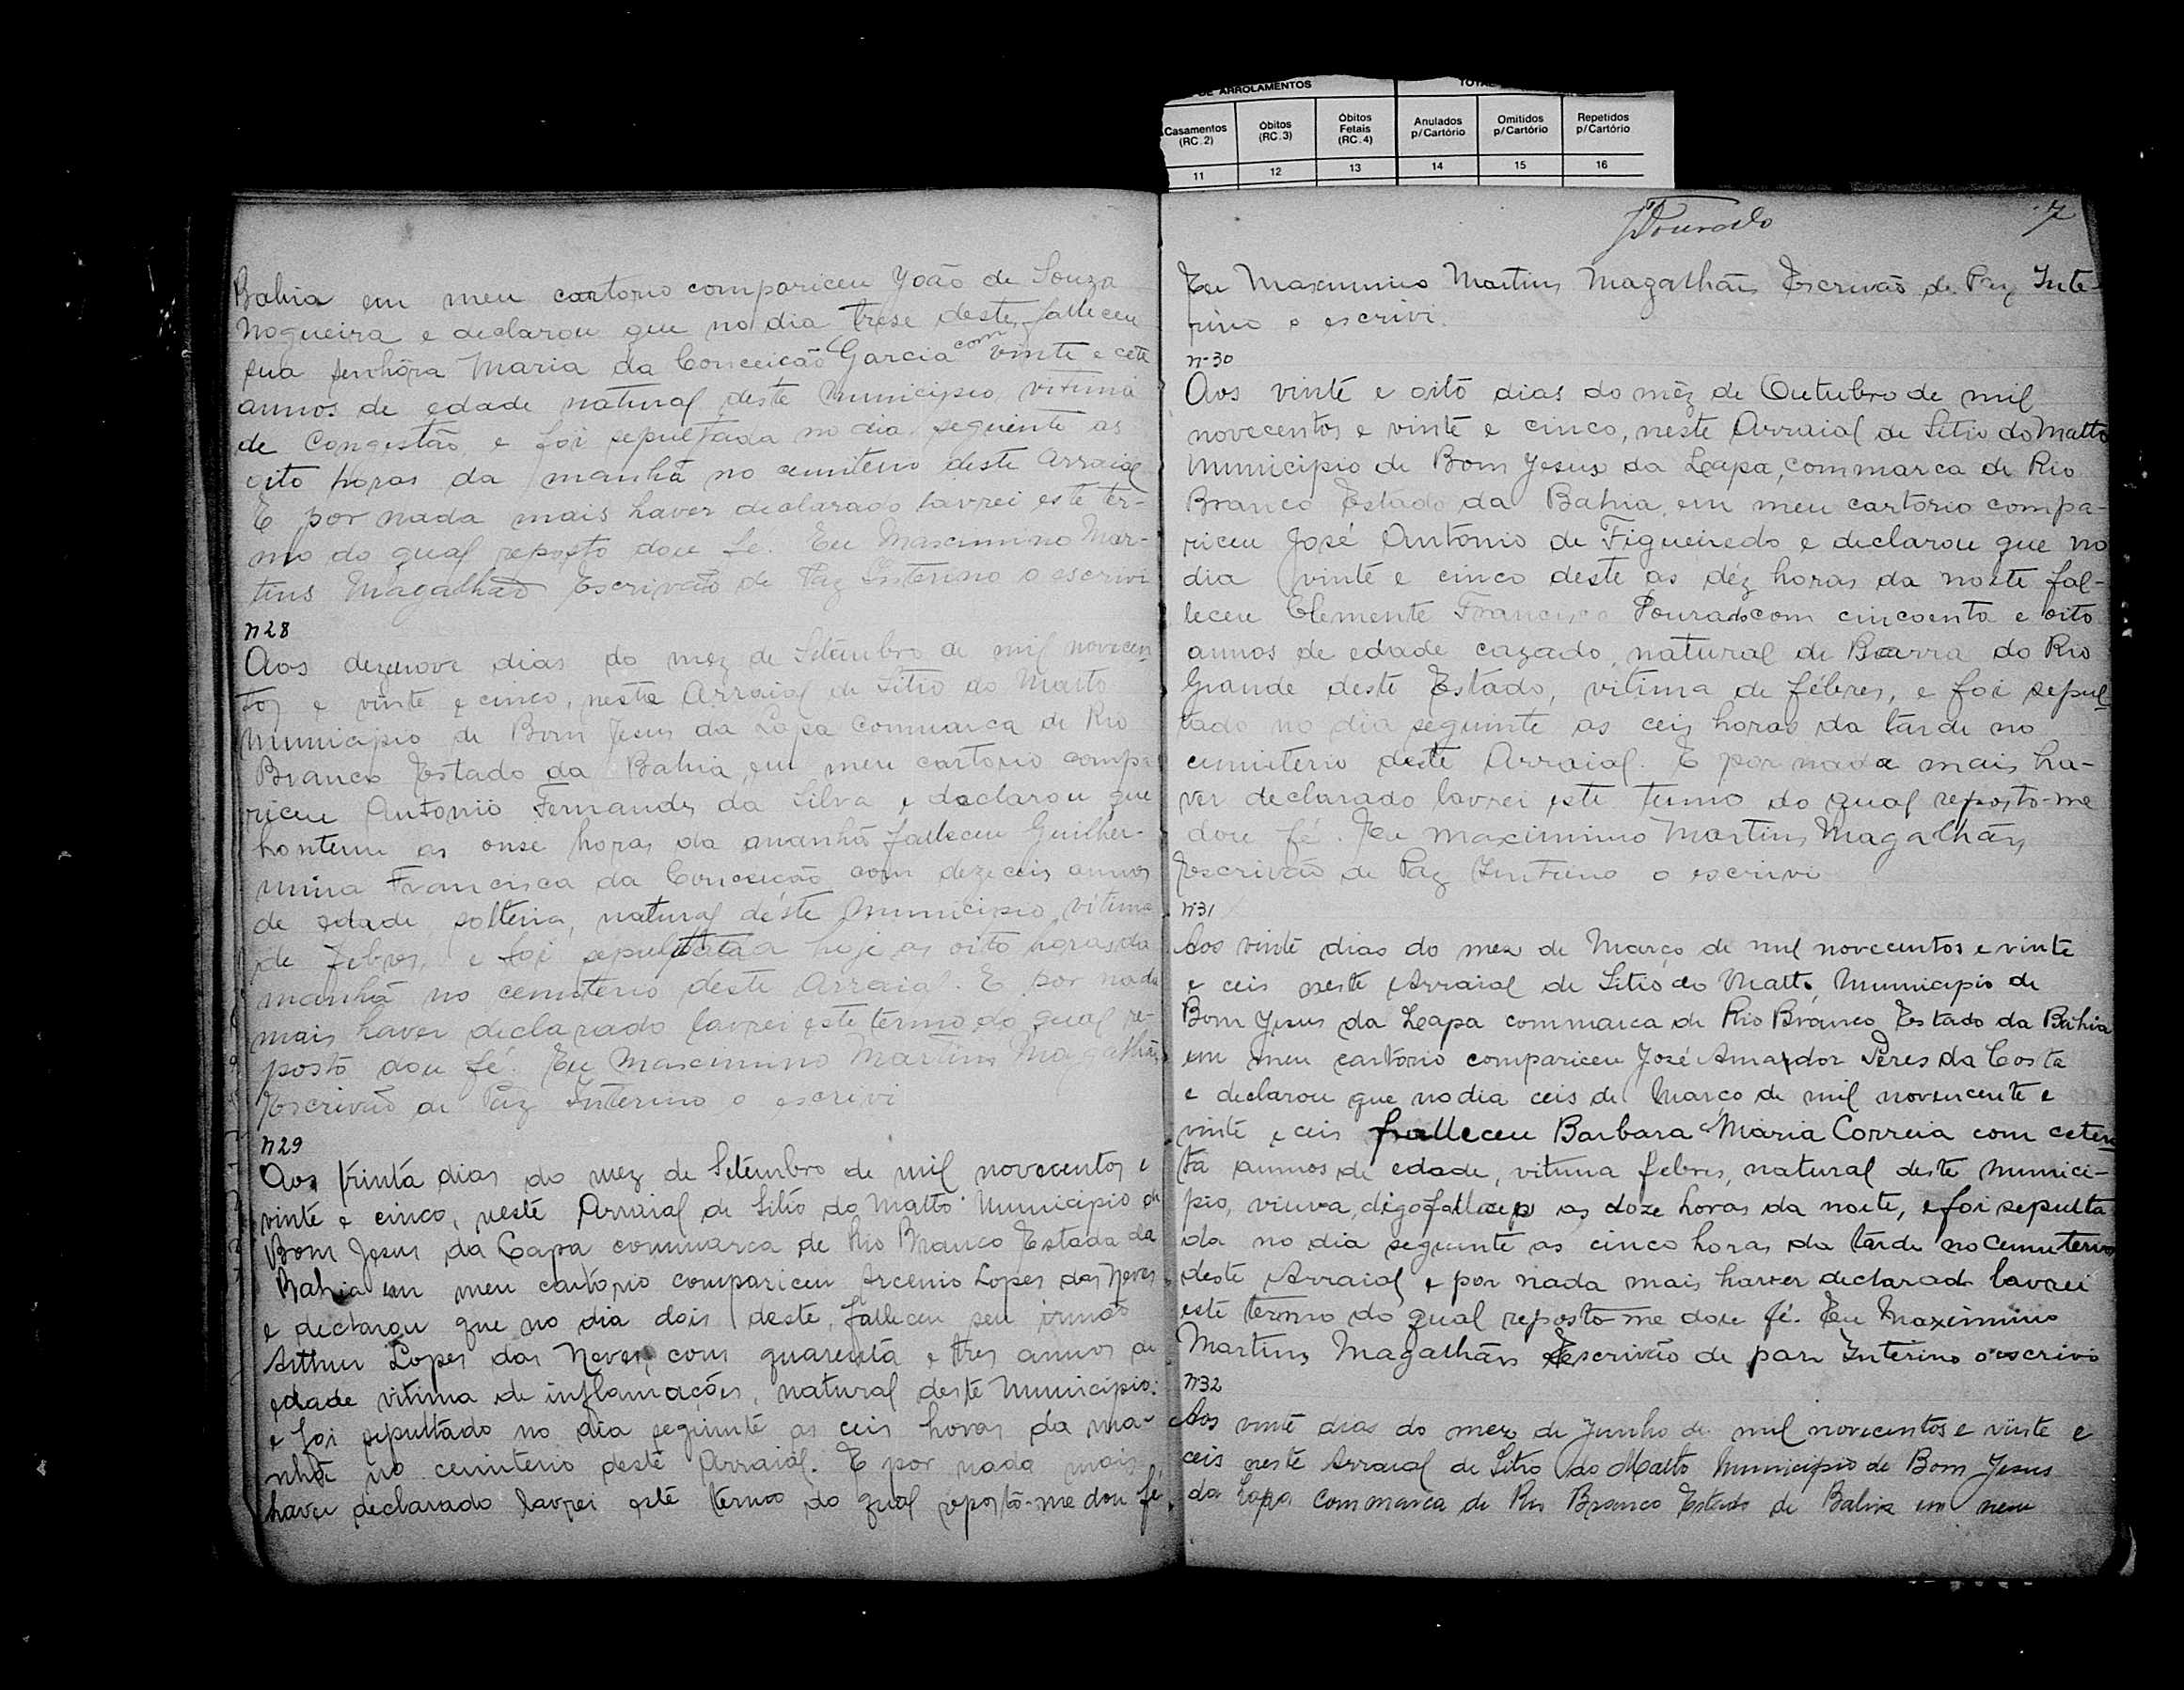 DE ARROLAMENTOS
Casamentos (RC.2) Óbitos (RC.3) Óbitos Fetais (RC.4) Anulados p/Cartório Omitidos p/Cartório Repetidos p/Cartório
11 12 13 14 15 16
Bahia em meu cartorio compariceu João de Souza
Nogueira e declarou que no dia trese deste, falleceu
sua senhôra Maria da Conceicão Garcia com vinte e cete
annos de edade natural deste Municipio, vitima
de Congestão, e foi sepultada no dia seguinte as
oito horas da manhã no cemiterio deste Arraial
E por nada mais haver declarado lavrei este ter-
mo do qual reposto dou fe. Eu Maximino Mar-
tins Magalhão Escrivão de Paz Interino o escrivi
n28
Aos dezenove dias do mez de Setembro de mil novecen
tos e vinte e cinco, neste Arraial de Sitio do Matto
Municipio de Bom Jesus da Lapa Commarca de Rio
Branco Estado da Bahia, em meu cartorio compa
riceu Antonio Fernandes da Silva e declarou que
hontem as onse horas da manhã falleceu Guilher-
mina Francisca da Conceição com dezeceis annos
de edade solteira, natural déste Municipio, vitima
de febres, e foi sepultada hoje as oito horas da
manhã no cemiterio deste Arraial. E por nada
mais haver declarado lavrei este termo do qual re-
posto dou fé. Eu Maximino Martins Magalhães
Escrivão de Paz Interino o escrivi
n29
Aos trinta dias do mez de Setembro de mil novecentos e
vinte e cinco, neste Arraial de Sitio do Matto Municipio de
Bom Jesus da Lapa commarca de Rio Branco Estada da
Bahia em meu cartorio compariceu Arcenio Lopes das Neves
e declarou que no dia dois deste, falleceu seu irmão
Arthur Lopes das Neves, com quarenta e tres annos de
edade vitima de inflamações, natural deste Municipio:
e foi sepultado no dia seguinte as ceis horas da ma-
nhã no cemiterio deste Arraiál. E por nada mais
haver declarado lavrei este termo do qual reposto-me dou fé,
Dourado
7
Eu Maximino Martins Magalhães Escrivão de Paz Inte-
rino o escrivi.
n-30
Aos vinte e oito dias do mêz de Outubro de mil
novecentos e vinte e cinco, neste Arraial de Sitio do Matto
Municipio de Bom Jesus da Lapa, commarca de Rio
Branco Estado da Bahia, em meu cartorio compa-
riceu José Antonio de Figueiredo e declarou que no
dia vinte e cinco deste as déz horas da noite fal-
leceu Clemente Francisco Dourado com cincoenta e oito
annos de edade cazado, natural de Baarra do Rio
Grande deste Estado, vitima de fébres, e foi sepul
tado no dia seguinte as ceis horas da tarde no
cemiterio deste Arraial. E por nada mais ha-
ver declarado lavrei este termo do qual reposto-me
dou fé. Eu Maximino Martins Magalhães
Escrivão de Paz Interino o escrivi
n31
Aos vinte dias do mez de Março de mil novecentos e vinte
e ceis neste Arraial de Sitio do Matto, Municipio de
Bom Jesus da Leapa commarca de Rio Branco Estado da Bahia
em meu cartorio compariceu José Amardor Peres da Costa
e declarou que no dia ceis de Março de mil novencente e
vinte e ceis falleceu Barbara Maria Correia com ceten
ta annos de edade, vitima febres, natural deste Munici-
pio, viuva, digo falleceo as doze horas da noite, e foi sepulta
da no dia seguinte as cinco horas da tarde no Cemiterio
deste Arraial e por nada mais haver declarado lavrei
este termo do qual reposto-me dou fé. Eu Maximino
Martins Magalhães Escrivão de paz Interino o escrivi
n32
Aos vinte dias do mez de Junho de mil novecentos e vinte e
ceis neste Arraial de Sitio do Matto Municipio de Bom Jesus
da Lapa Commarca de Rio Branco Estado de Bahia em meu